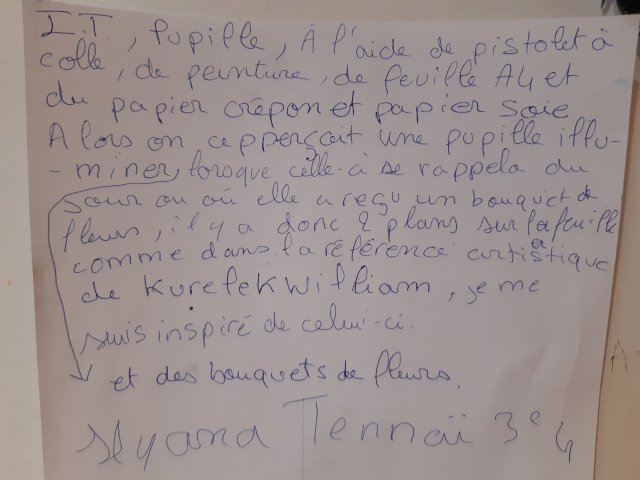 I.T., Pupille, À l'aide de pistolet à
colle, de peinture, de feuille A4 et
du papier crépon et papier soie
Alors on apperçoit une pupille illu-
-miner, lorsque celle-ci se rappela du
jour ou où elle a reçu un bouquet de
fleurs, il y a donc 2 plans sur la feuille
comme dans la référence artistique
de Kurelek William, je me
suis inspiré de celui-ci.
et des bouquets de fleurs.
Ilyana Tennaï 3e 4